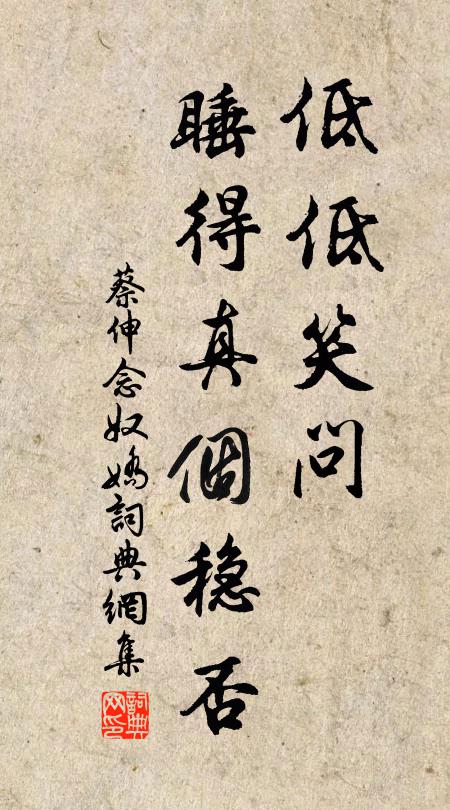 低低笑問
睡得真個穩否
蔡伸念奴嬌詞典網集
詞典網印